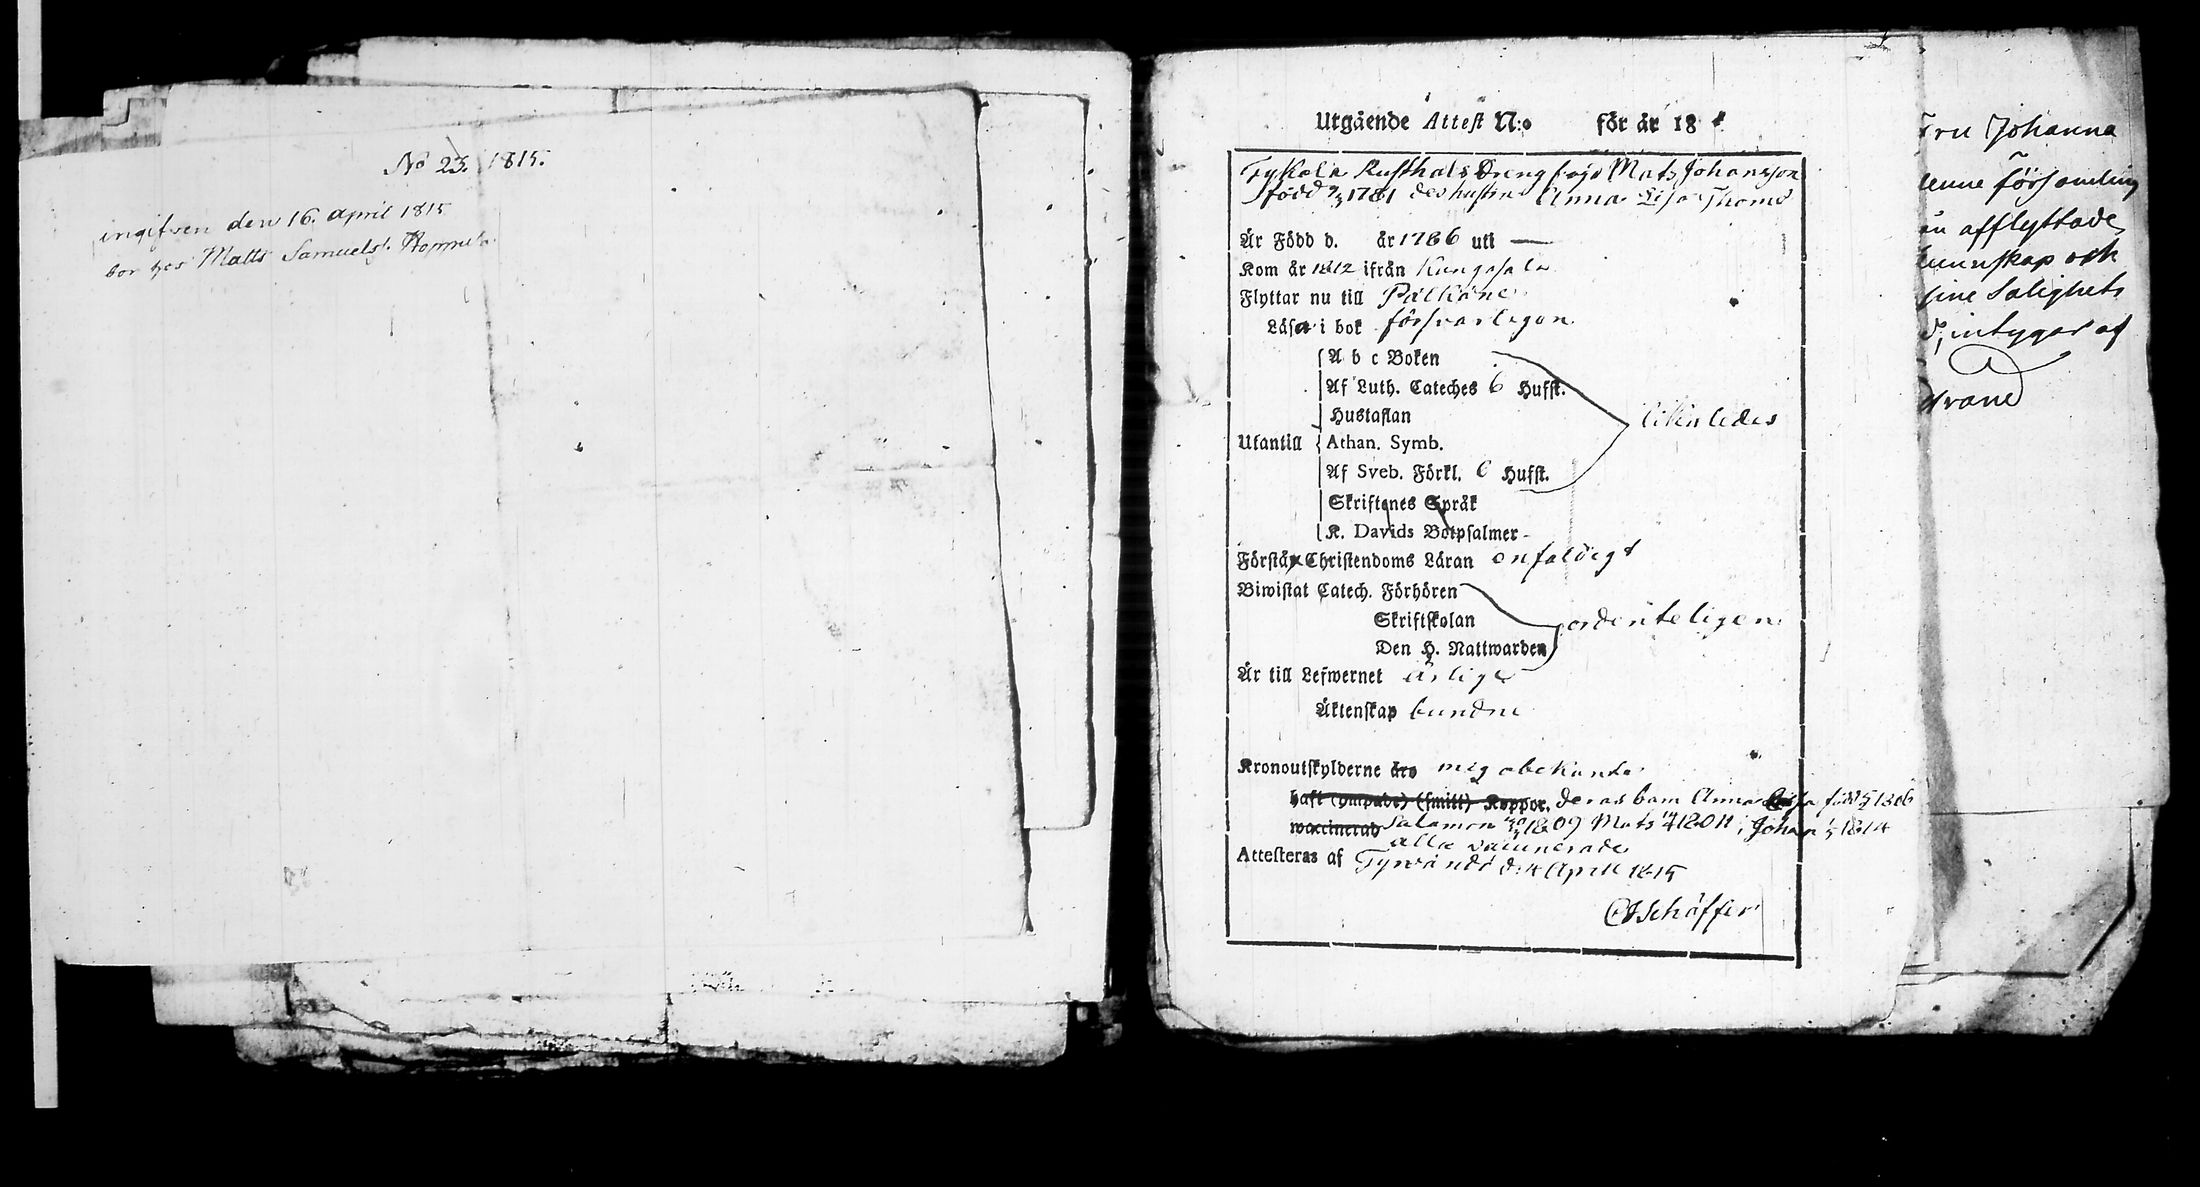 No 23. 1815.
ingifven den 16. April 1815
bor hos Matts Samuels.
Utgående Attest N:o för år 18
Rusthåls Dreng Mats Johansson
född 1781 des hustru Anna Lisa Thoms
År Född d. år 1786 uti —
Kom år 1812 ifrån Kangasala
Flyttar nu till Pälkäne
Läsa i bok försvarligen
A b c Boken
Af Luth. Cateches 6 Hufst.
Hustaflan
likaledes
Utantill Athan. Symb.
Af Sveb. Förkl. 6 Hufst.
Skriftenes Språk
K. Davids Botpsalmer
Förstå Christendoms Läran enfaldigt
Biwistat Catech. Förhören
Skriftskolan ordenteligen
Den H. Nattwarden
Är till Lefwernet ärlige
Äktenskap bundne
Kronoutskylderne äro mig obekanta
haft (ympade) (smitt) Koppor, deras barn Anna Lisa född 1806
waccinerad Salomon 1809 Mats 1811, Johan 1814
alla vaccinerade
Attesteras af Tyrvändö d. 4 April 1815
Schäffer
Fru Johanna
denne församling
afflyttade
kunskap och
sine Salighets
intygar af